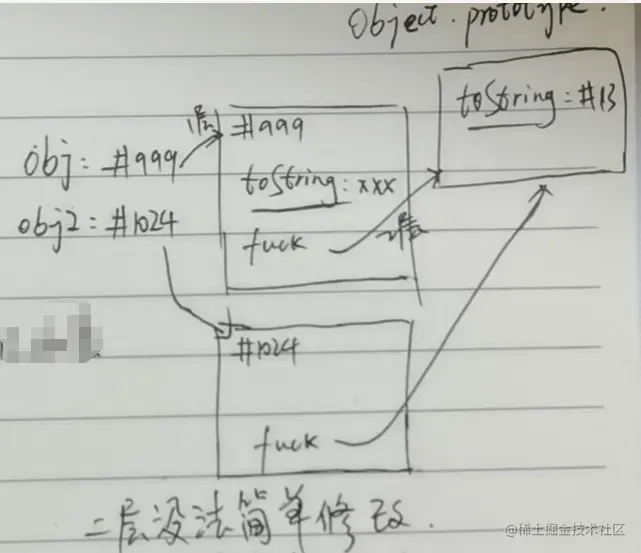 Object.prototype.
toString:#13
1层
#999
obj:#999
toString:xxx
obj2:#1024
fuck
2层
#1024
fuck
二层没法简单修改.
@稀土掘金技术社区